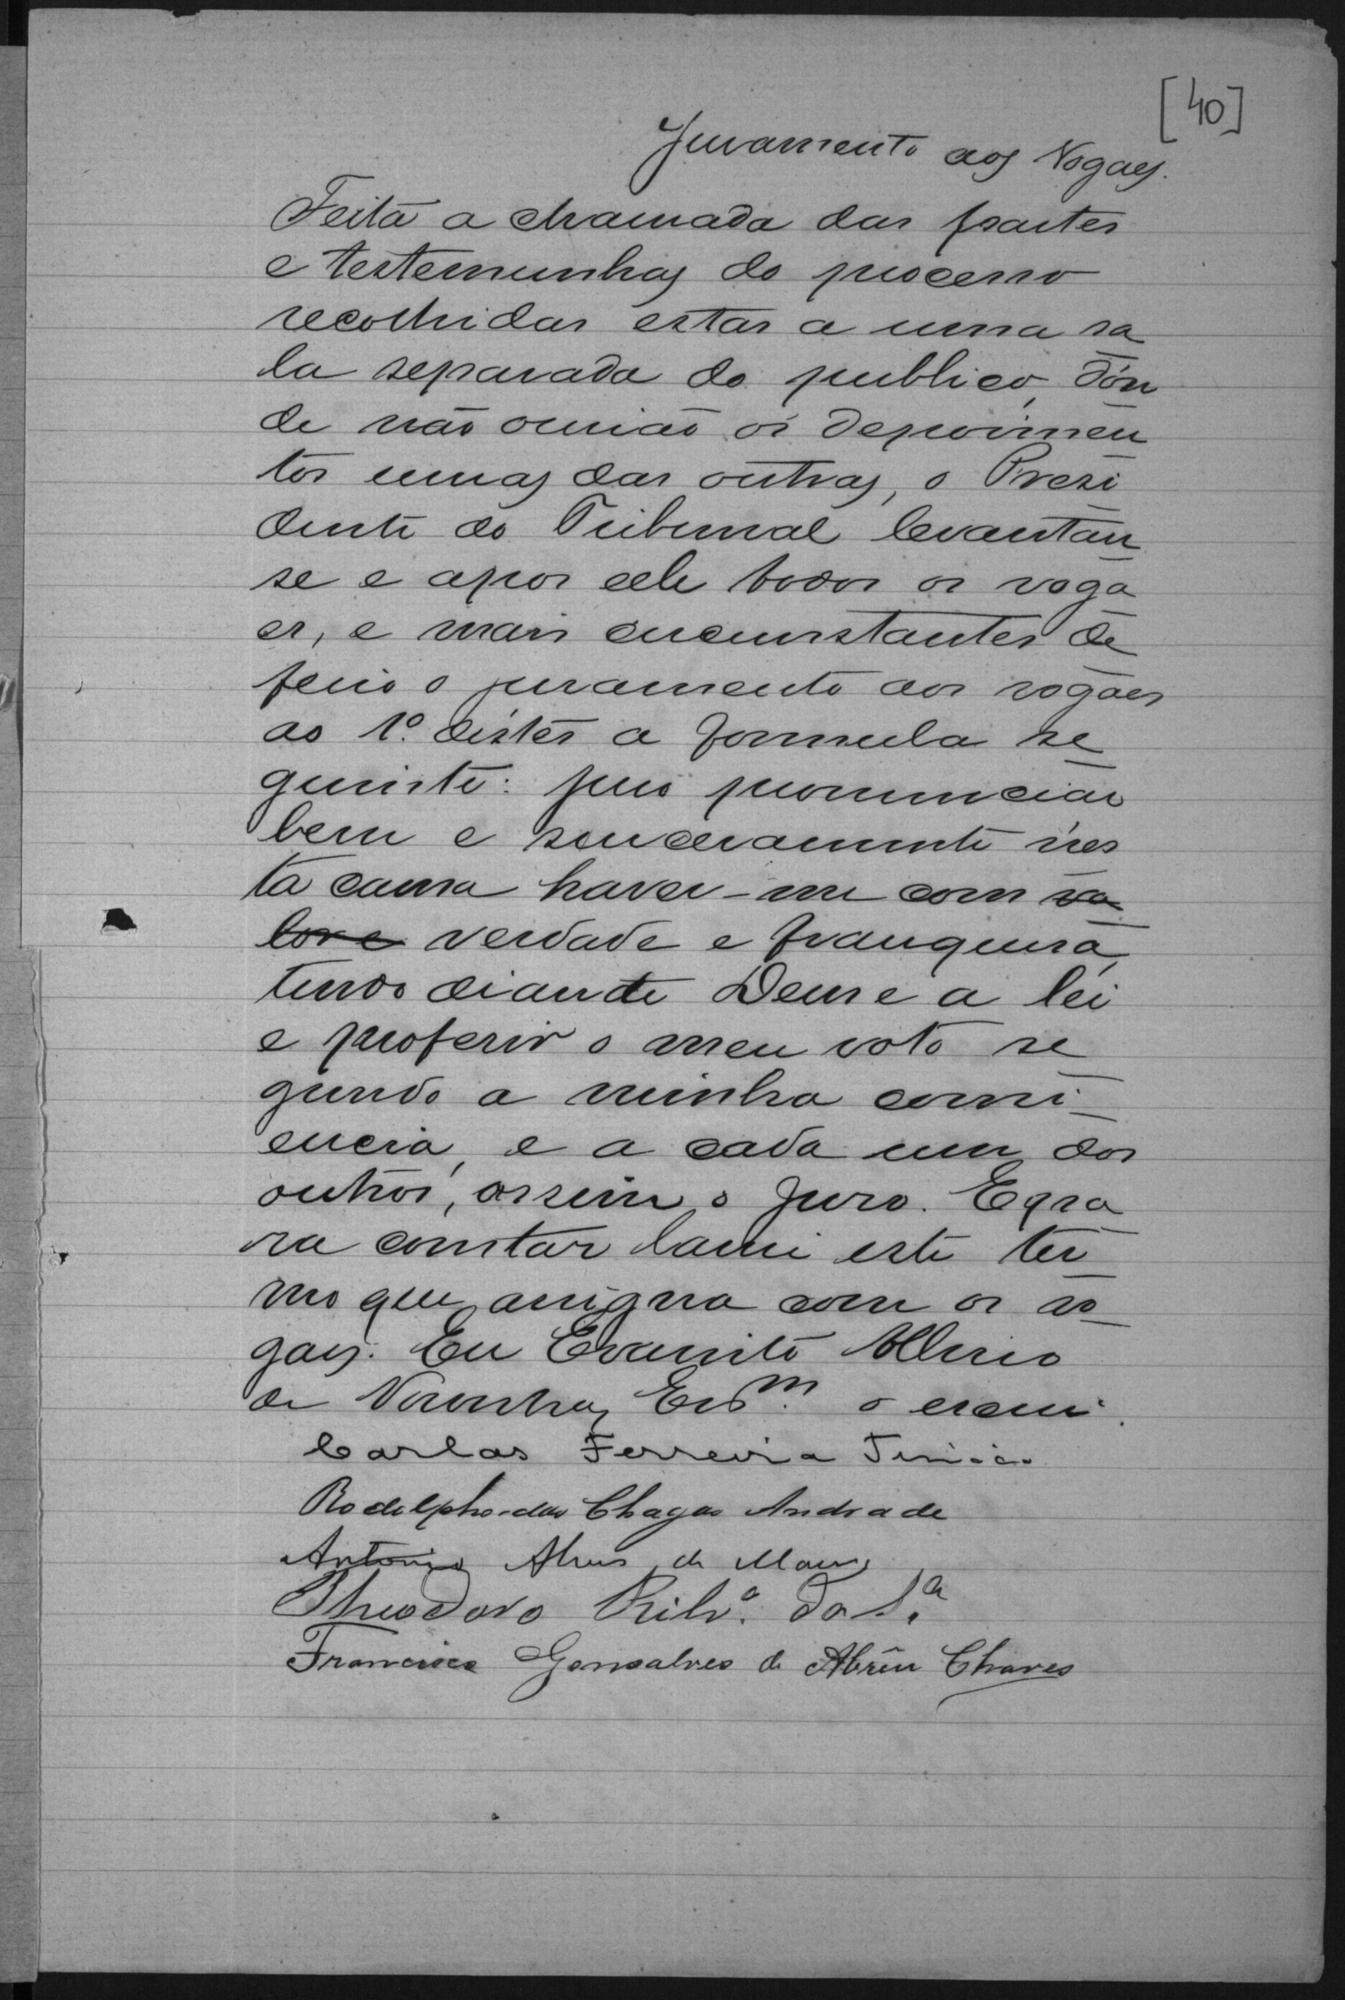 [40]
Juramento aos Vogaes.
Feita a chamada das partes
e testemunhas do processo
recolhidas estas a uma sa
la separada do publico, don
de não ouvião os depoimen
tos umas das outras, o Presi
dente do Tribunal levantan
se e apos elle todos os voga
es, e mais circumstantes de
ferio o juramento aos vogaes
ao 1º. distes a formula se
guinte: juro pronunciar
bem e sinceramente nes
ta causa haver-me com va
lor e verdade e franqueza,
tendo diante Deus e a lei
e proferir o meu voto se
gundo a minha consi
encia, e a cada um dos
outros, assim o juro. E pa
ra constar lavrei este ter
mo que assigna com os vo
gaes. Eu Evaristo Albino
de Noronha, Esc.m o escrevi.
Carlos Ferreira
Rodolpho das Chagas Andrade
Antonio Alves de
Theodoro Ribrº. da S.ª
Francisco Gonsalves de Abrêu Chaves